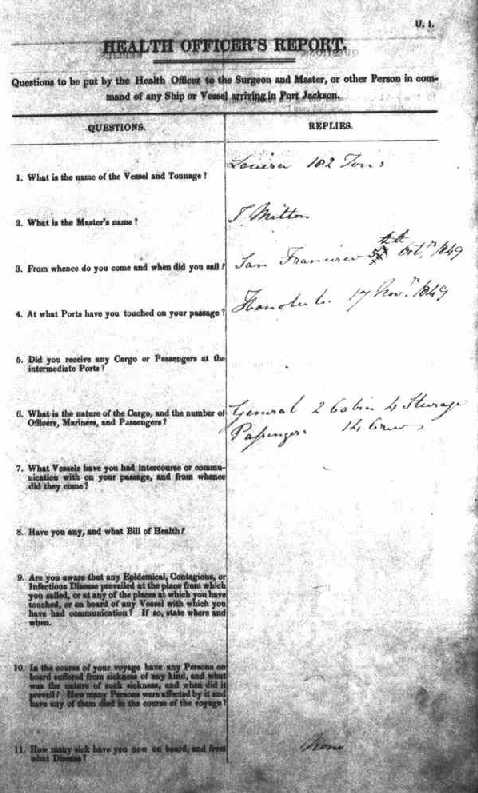 U. 1.
HEALTH OFFICER'S REPORT.
Questions to be put by the Health Officer to the Surgeon and Master, or other Person in com-
mand of any Ship or Vessel arriving in Port Jackson.
QUESTIONS. REPLIES.
1. What is the name of the Vessel and Tonnage? Louisa 102 Tons
2. What is the Master's name? J. Milton
3. From whence do you come and when did you sail? San Francisco Octr. 1849
4. At what Ports have you touched on your passage? Honolulu 17 Novr. 1849
5. Did you receive any Cargo or Passengers at the
intermediate Ports?
6. What is the nature of the Cargo, and the number of
Officers, Mariners, and Passengers?
General 2 Cabin 4 Sterage
Passengers 14 Crew
7. What Vessels have you had intercourse or commu-
nication with on your passage, and from whence
did they come?
8. Have you any, and what Bill of Health?
9. Are you aware that any Epidemical, Contagious, or
Infectious Disease prevailed at the place from which
you sailed, or at any of the places at which you have
touched, or on board of any Vessel with which you
have had communication? If so, state where and
when.
10. In the course of your voyage have any Persons on
board suffered from sickness of any kind, and what
was the nature of such sickness, and when did it
prevail? How many Persons were affected by it and
have any of them died in the course of the voyage?
11. How many sick have you now on board, and from
what Disease?
None